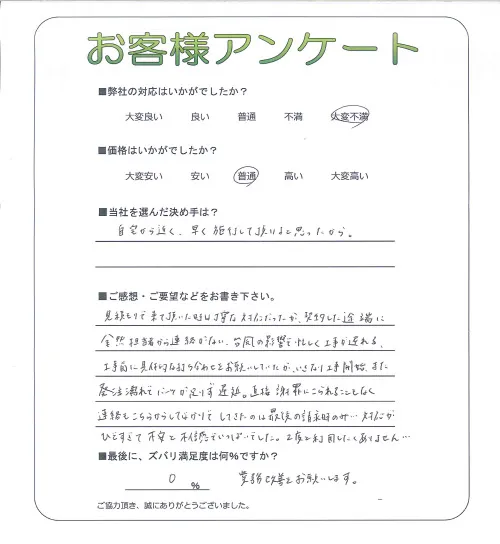 お客様アンケート
■弊社の対応はいかがでしたか？
大変良い 良い 普通 不満 大変不満
■価格はいかがでしたか？
大変安い 安い 普通 高い 大変高い
■当社を選んだ決め手は？
自宅から近く、早く施行して頂けると思ったから。
■ご感想・ご要望などをお書き下さい。
見積もりで来て頂いた時は丁寧な対応だったが、契約した途端に
全然担当者から連絡がない、台風の影響で忙しく工事が遅れる、
工事前に具体的な打ち合わせをお願いしていたが、いきなり工事開始、また
発注漏れでパーツが足りず遅延。直接謝罪にこられることもなく
連絡もこちらからしてばかりで してきたのは最後の請求時のみ… 対応が
ひどすぎて 不安と不信感でいっぱいでした。2度と利用したくありません…
■最後に、ズバリ満足度は何％ですか？
0 % 業務改善をお願いします。
ご協力頂き、誠にありがとうございました。